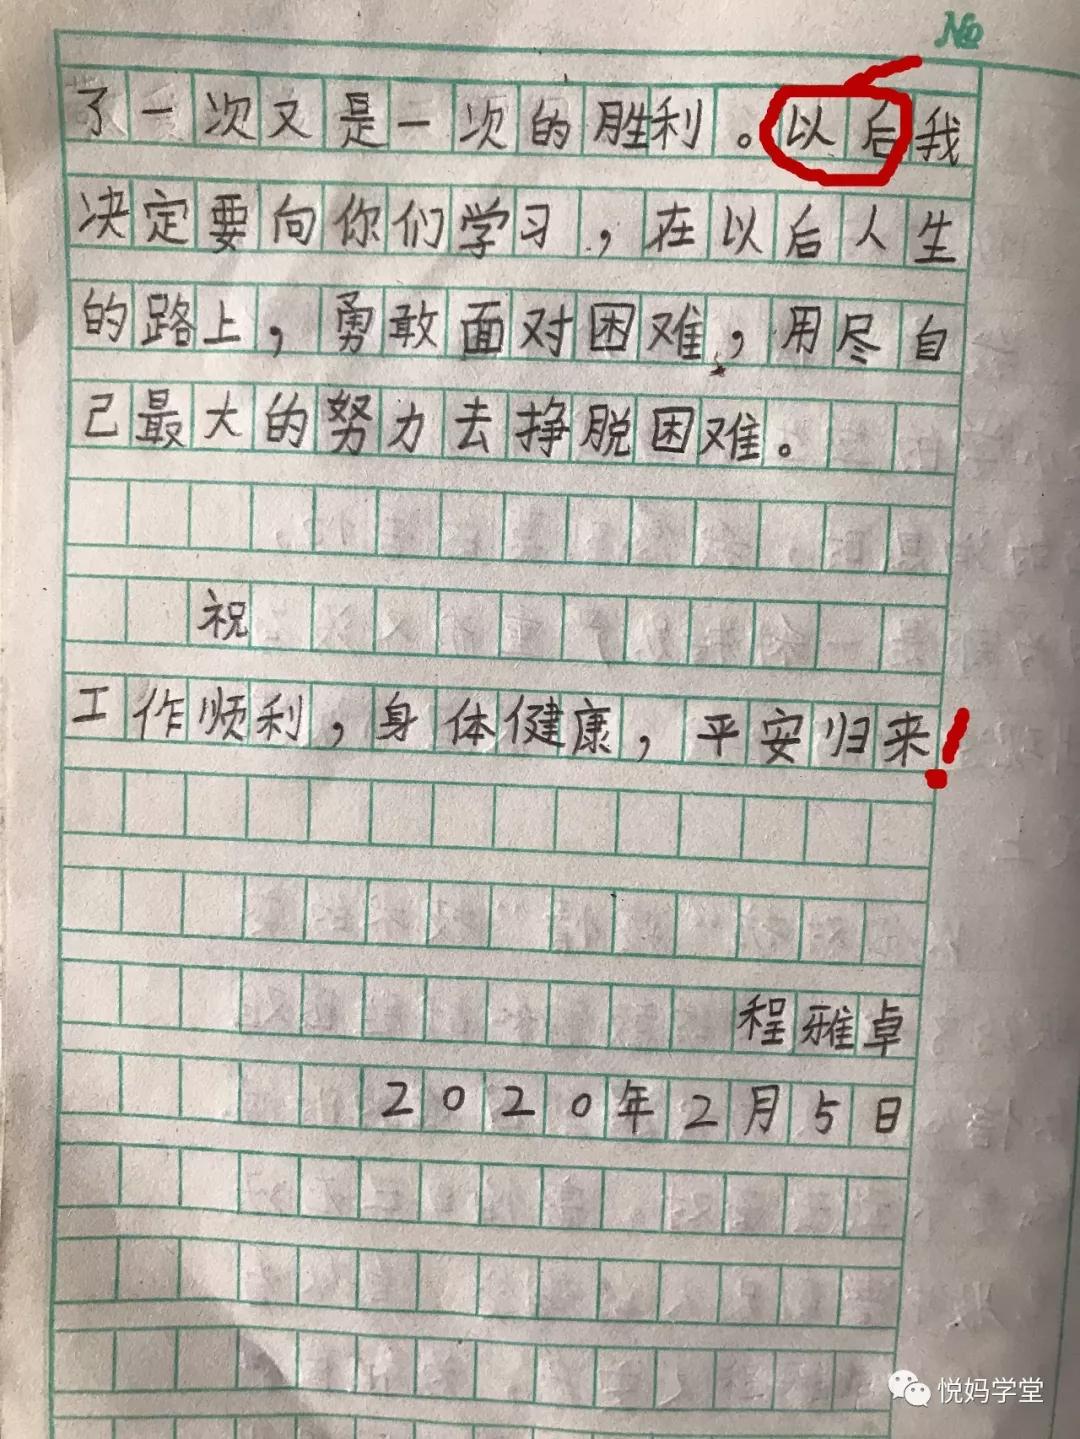 №
了一次又是一次的胜利。以后我
决定要向你们学习，在以后人生
的路上，勇敢面对困难，用尽自
己最大的努力去挣脱困难。
祝
工作顺利，身体健康，平安归来！
程雅卓
2020年2月5日
悦妈学堂